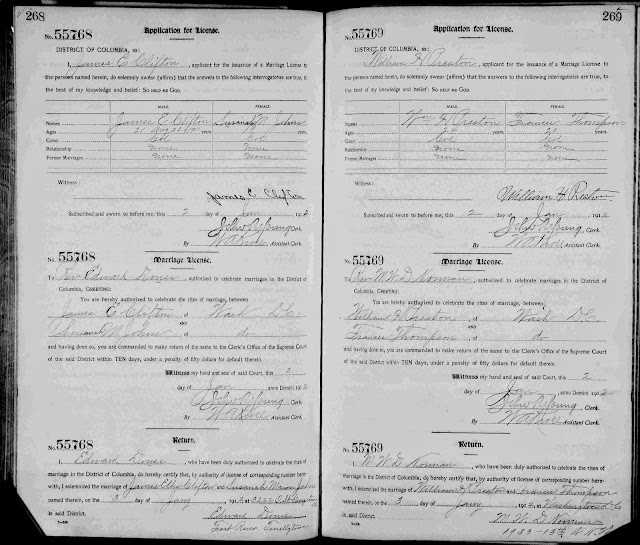 268
Application for License.
No. 55768
DISTRICT OF COLUMBIA, ss:
I, James E Clifton, applicant for the issuance of a Marriage License to
the persons named herein, do solemnly swear (affirm) that the answers to the following interrogatories are true, to
the best of my knowledge and belief: SO HELP ME GOD.
MALE. FEMALE.
Names James E Clifton
Ages 21 years. years.
Color Col Col
Relationship None None
Former Marriages None None
Witness:
James E Clifton
Subscribed and sworn to before me, this 2 day of Jan 1912
John R Young Clerk.
By Assistant Clerk.
No. 55768
Marriage License.
To Rev. Edward, authorized to celebrate marriages in the District of
Columbia, GREETING:
You are hereby authorized to celebrate the rites of marriage, between
James E Clifton, of Wash D.C.
AND
of do
and having done so, you are commanded to make return of the same to the Clerk's Office of the Supreme Court
of the said District within TEN days, under a penalty of fifty dollars for default therein.
Witness my hand and seal of said Court, this 2
day of Jan, anno Domini 1912
John R Young, Clerk.
By Assistant Clerk.
No. 55768
Return.
I, Edward, who have been duly authorized to celebrate the rites of
marriage in the District of Columbia, do hereby certify that, by authority of license of corresponding number here-
with, I solemnized the marriage of James Clifton and
named therein, on the day of Jany, 1912, at
in said District.
Edward
269
Application for License.
No. 55769
DISTRICT OF COLUMBIA, ss:
I, William H Preston, applicant for the issuance of a Marriage License to
the persons named herein, do solemnly swear (affirm) that the answers to the following interrogatories are true, to
the best of my knowledge and belief: SO HELP ME GOD.
MALE. FEMALE.
Names Wm H Preston Frances Thompson
Ages years. years.
Color Col Col
Relationship None None
Former Marriages None None
Witness:
William H Preston
Subscribed and sworn to before me, this 2 day of Jan 1912
John R Young Clerk.
By Assistant Clerk.
No. 55769
Marriage License.
To Rev. W W D Norman, authorized to celebrate marriages in the District of
Columbia, GREETING:
You are hereby authorized to celebrate the rites of marriage, between
William H Preston, of Wash D.C.
AND
Frances Thompson, of do
and having done so, you are commanded to make return of the same to the Clerk's Office of the Supreme Court
of the said District within TEN days, under a penalty of fifty dollars for default therein.
Witness my hand and seal of said Court, this 2
day of Jan, anno Domini 1912
John R Young, Clerk.
By Assistant Clerk.
No. 55769
Return.
I, W W D Norman, who have been duly authorized to celebrate the rites of
marriage in the District of Columbia, do hereby certify that, by authority of license of corresponding number here-
with, I solemnized the marriage of William H Preston and Frances Thompson
named therein, on the 3 day of Jany, 1912, at Washington D.C.
in said District.
W. W. D Norman
1933-13th N.W.